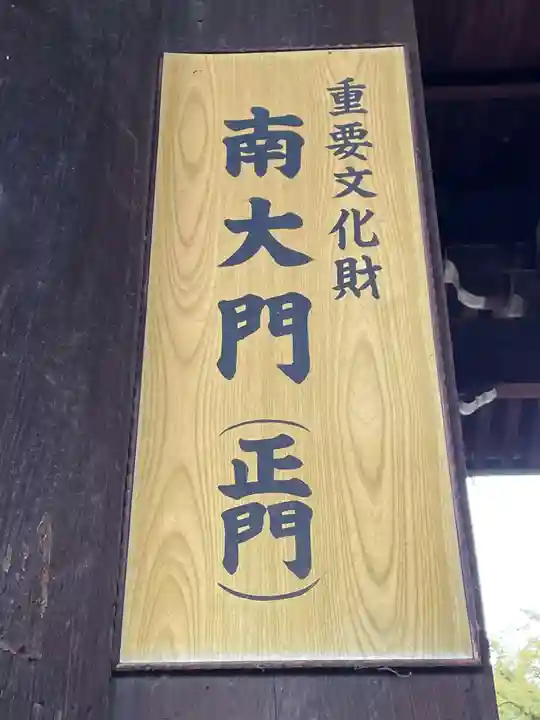 重要文化財
南大門（正門）